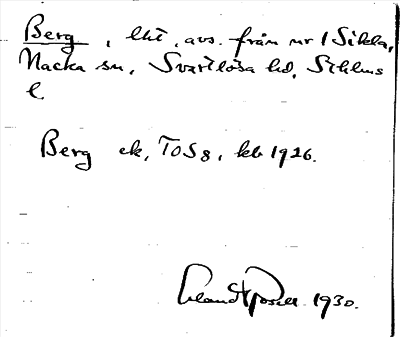 Berg, lht, avs. från nr 1 Sikla,
Nacka sn, Svartlösa hd, Sthlms
l
Berg ek, TOS 8, kb 1926.
1930.